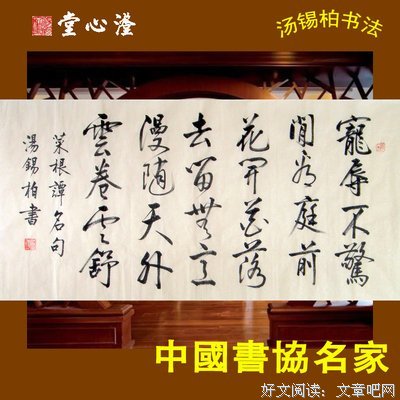 澄心堂
汤锡柏书法
寵辱不驚
閒看庭前
花開花落
去留無意
漫隨天外
雲卷雲舒
菜根譚名句
湯錫柏書
中國書協名家
好文阅读：文章吧网